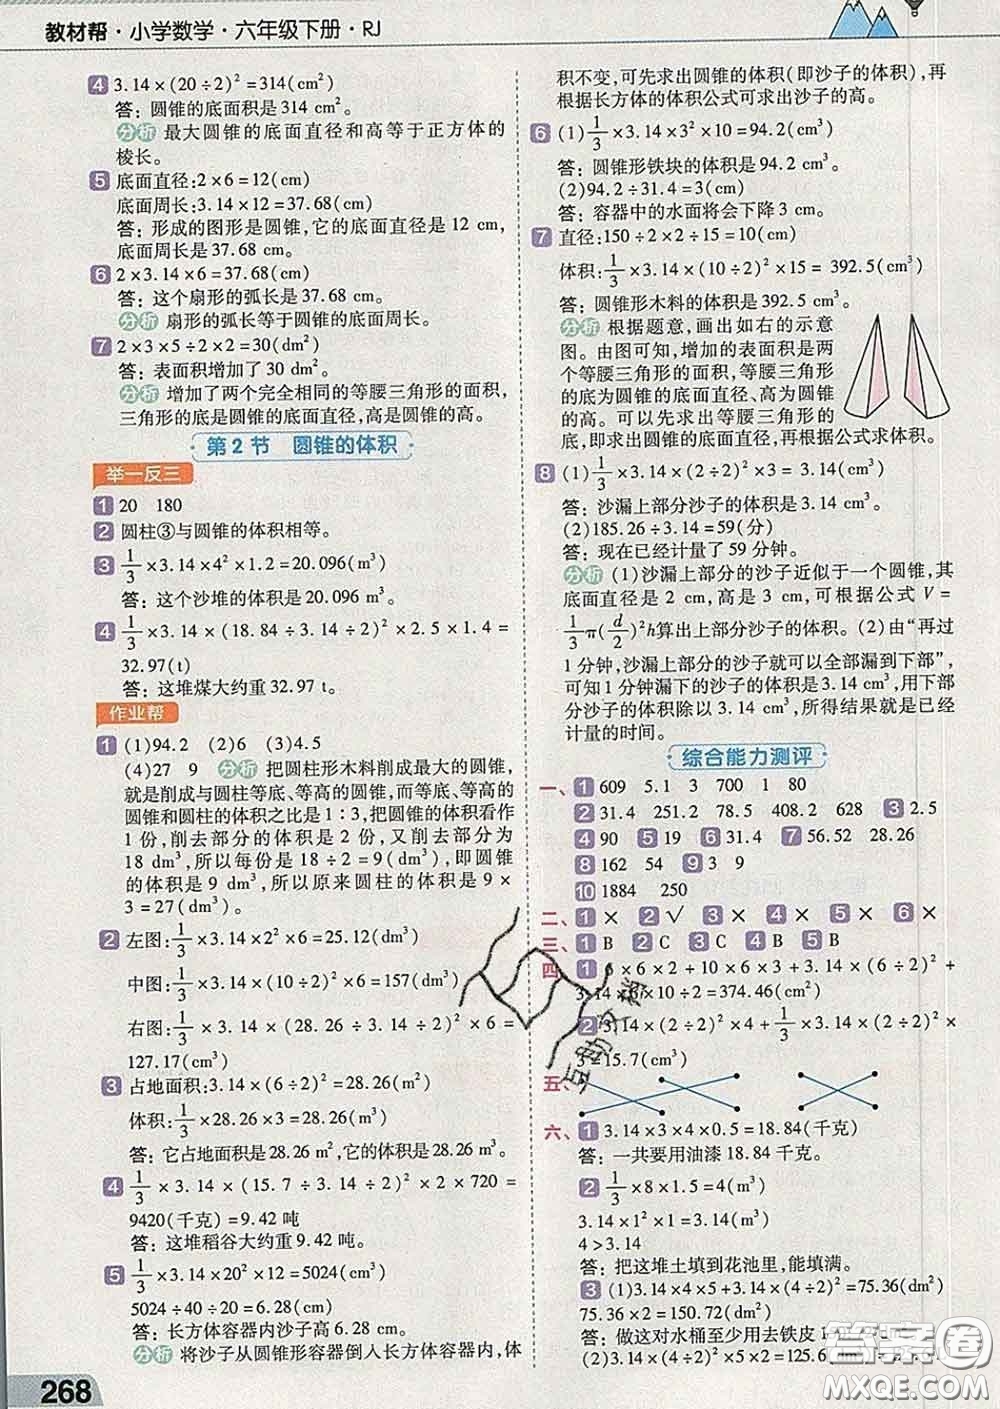 教材帮·小学数学·六年级下册·RJ
4 3.14×(20÷2)²=314(cm²)
答：圆锥的底面积是314 cm²。
分析 最大圆锥的底面直径和高等于正方体的
棱长。
5 底面直径:2×6=12(cm)
底面周长:3.14×12=37.68(cm)
答：形成的图形是圆锥,它的底面直径是12 cm,
底面周长是37.68 cm。
6 2×3.14×6=37.68(cm)
答：这个扇形的弧长是37.68 cm。
分析 扇形的弧长等于圆锥的底面周长。
7 2×3×5÷2×2=30(dm²)
答：表面积增加了30 dm²。
分析 增加了两个完全相同的等腰三角形的面积,
三角形的底是圆锥的底面直径,高是圆锥的高。
第2节 圆锥的体积
举一反三
1 20 180
2 圆柱③与圆锥的体积相等。
3 1/3×3.14×4²×1.2=20.096(m³)
答：这个沙堆的体积是20.096 m³。
4 1/3×3.14×(18.84÷3.14÷2)²×2.5×1.4=
32.97(t)
答：这堆煤大约重32.97 t。
作业帮
1 (1)94.2 (2)6 (3)4.5
(4)27 9 分析 把圆柱形木料削成最大的圆锥,
就是削成与圆柱等底、等高的圆锥,而等底、等高的
圆锥和圆柱的体积之比是1∶3,把圆锥的体积看作
1份,削去部分的体积是2份,又削去部分为
18 dm³,所以每份是18÷2=9(dm³),即圆锥
的体积是9 dm³,所以原来圆柱的体积是9×
3=27(dm³)。
2 左图:1/3×3.14×2²×6=25.12(dm³)
中图:1/3×3.14×(10÷2)²×6=157(dm³)
右图:1/3×3.14×(28.26÷3.14÷2)²×6=
127.17(cm³)
3 占地面积:3.14×(6÷2)²=28.26(m²)
体积:1/3×28.26×3=28.26(m³)
答：它占地面积28.26 m²,它的体积是28.26 m³。
4 1/3×3.14×(15.7÷3.14÷2)²×2×720=
9420(千克)=9.42吨
答：这堆稻谷大约重9.42吨。
5 1/3×3.14×20²×12=5024(cm³)
5024÷40÷20=6.28(cm)
答：长方体容器内沙子高6.28 cm。
分析 将沙子从圆锥形容器倒入长方体容器内,体
268
积不变,可先求出圆锥的体积(即沙子的体积),再
根据长方体的体积公式可求出沙子的高。
6 (1)1/3×3.14×3²×10=94.2(cm³)
答：圆锥形铁块的体积是94.2 cm³。
(2)94.2÷31.4=3(cm)
答：容器中的水面将会下降3 cm。
7 直径:150÷2×2÷15=10(cm)
体积:1/3×3.14×(10÷2)²×15=392.5(cm³)
答：圆锥形木料的体积是392.5 cm³。
分析 根据题意,画出如右的示意
图。由图可知,增加的表面积是两
个等腰三角形的面积,等腰三角形
的底为圆锥的底面直径、高为圆锥
的高。可以先求出等腰三角形的
底,即求出圆锥的底面直径,再根据公式求体积。
8 (1)1/3×3.14×(2÷2)²×3=3.14(cm³)
答：沙漏上部分沙子的体积是3.14 cm³。
(2)185.26÷3.14=59(分)
答：现在已经计量了59分钟。
分析 (1)沙漏上部分的沙子近似于一个圆锥,其
底面直径是2 cm,高是3 cm,可根据公式V=
1/3π(d/2)²h算出上部分沙子的体积。(2)由“再过
1分钟,沙漏上部分的沙子就可以全部漏到下部”,
可知1分钟漏下的沙子的体积是3.14 cm³,用下部
分沙子的体积除以3.14 cm³,所得结果就是已经
计量的时间。
综合能力测评
一、1 609 5.1 3 700 1 80
2 31.4 251.2 78.5 408.2 628 3 2.5
4 90 5 19 6 31.4 7 56.52 28.26
8 162 54 9 3 9
10 1884 250
二、1 × 2 √ 3 × 4 × 5 × 6 ×
三、1 B 2 C 3 C 4 B 5 B
四、1 6×6×2+10×6×3+3.14×(6÷2)²+
3.14×6×10÷2=374.46(cm²)
2 3.14×(2÷2)²×4+1/3×3.14×(2÷2)²×
3=15.7(cm³)
五、
六、1 3.14×3×4×0.5=18.84(千克)
答：一共要用油漆18.84千克。
2 1/3×8×1.5=4(m³)
3.14×1²×1=3.14(m³)
4>3.14
答：把这堆土填到花池里,能填满。
3 (1)3.14×4×5+3.14×(4÷2)²=75.36(dm²)
75.36×2=150.72(dm²)
答：做这对水桶至少用去铁皮1
(2)3.14×(4÷2)²×5×2=125.6(dm³)
互助文档
答案圈
MXQE.COM